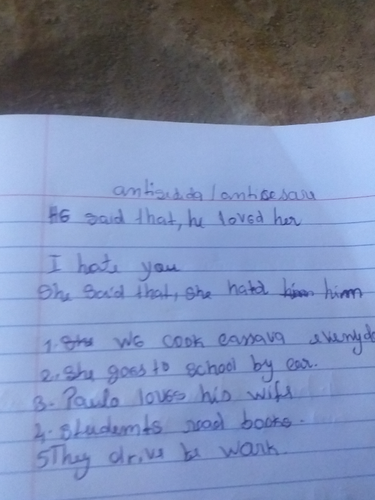 He said that, he loved her
I hate you
She said that, she hated him
1. We cook cassava everyda
2. She goes to school by car.
3. Paulo loves his wife
4. Students read books.
5 They drive be wark.